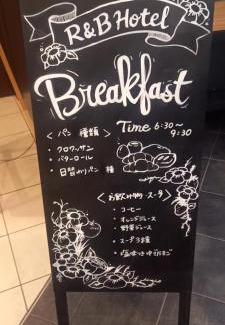 R&B Hotel
Breakfast
＜ パン 種類 ＞
・クロワッサン
・バターロール
・日替わりパン 種
Time 6:30～
9:30
＜ お飲み物・スープ ＞
・コーヒー
・オレンジジュース
・野菜ジュース
・スープ3種